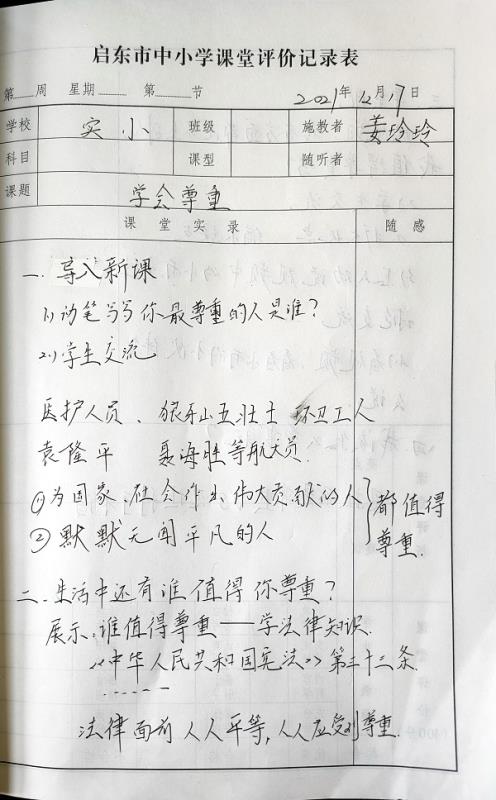 启东市中小学课堂评价记录表
第 周 星期 第 节 2021年12月17日
学校 实小 班级 施教者 姜玲玲
科目 课型 随听者
课题 学会尊重
课堂实录 随感
一、导入新课
1、动笔写写你最尊重的人是谁?
2、学生交流
医护人员、狼牙山五壮士 环卫工人
袁隆平 聂海胜等航大员.
①为国家、社会作出伟大贡献的人
②默默无闻平凡的人
都值得
尊重.
二、生活中还有谁值得你尊重?
展示:谁值得尊重——学法律知识.
《中华人民共和国宪法》第三十三条.
------
法律面前人人平等,人人应受到尊重.